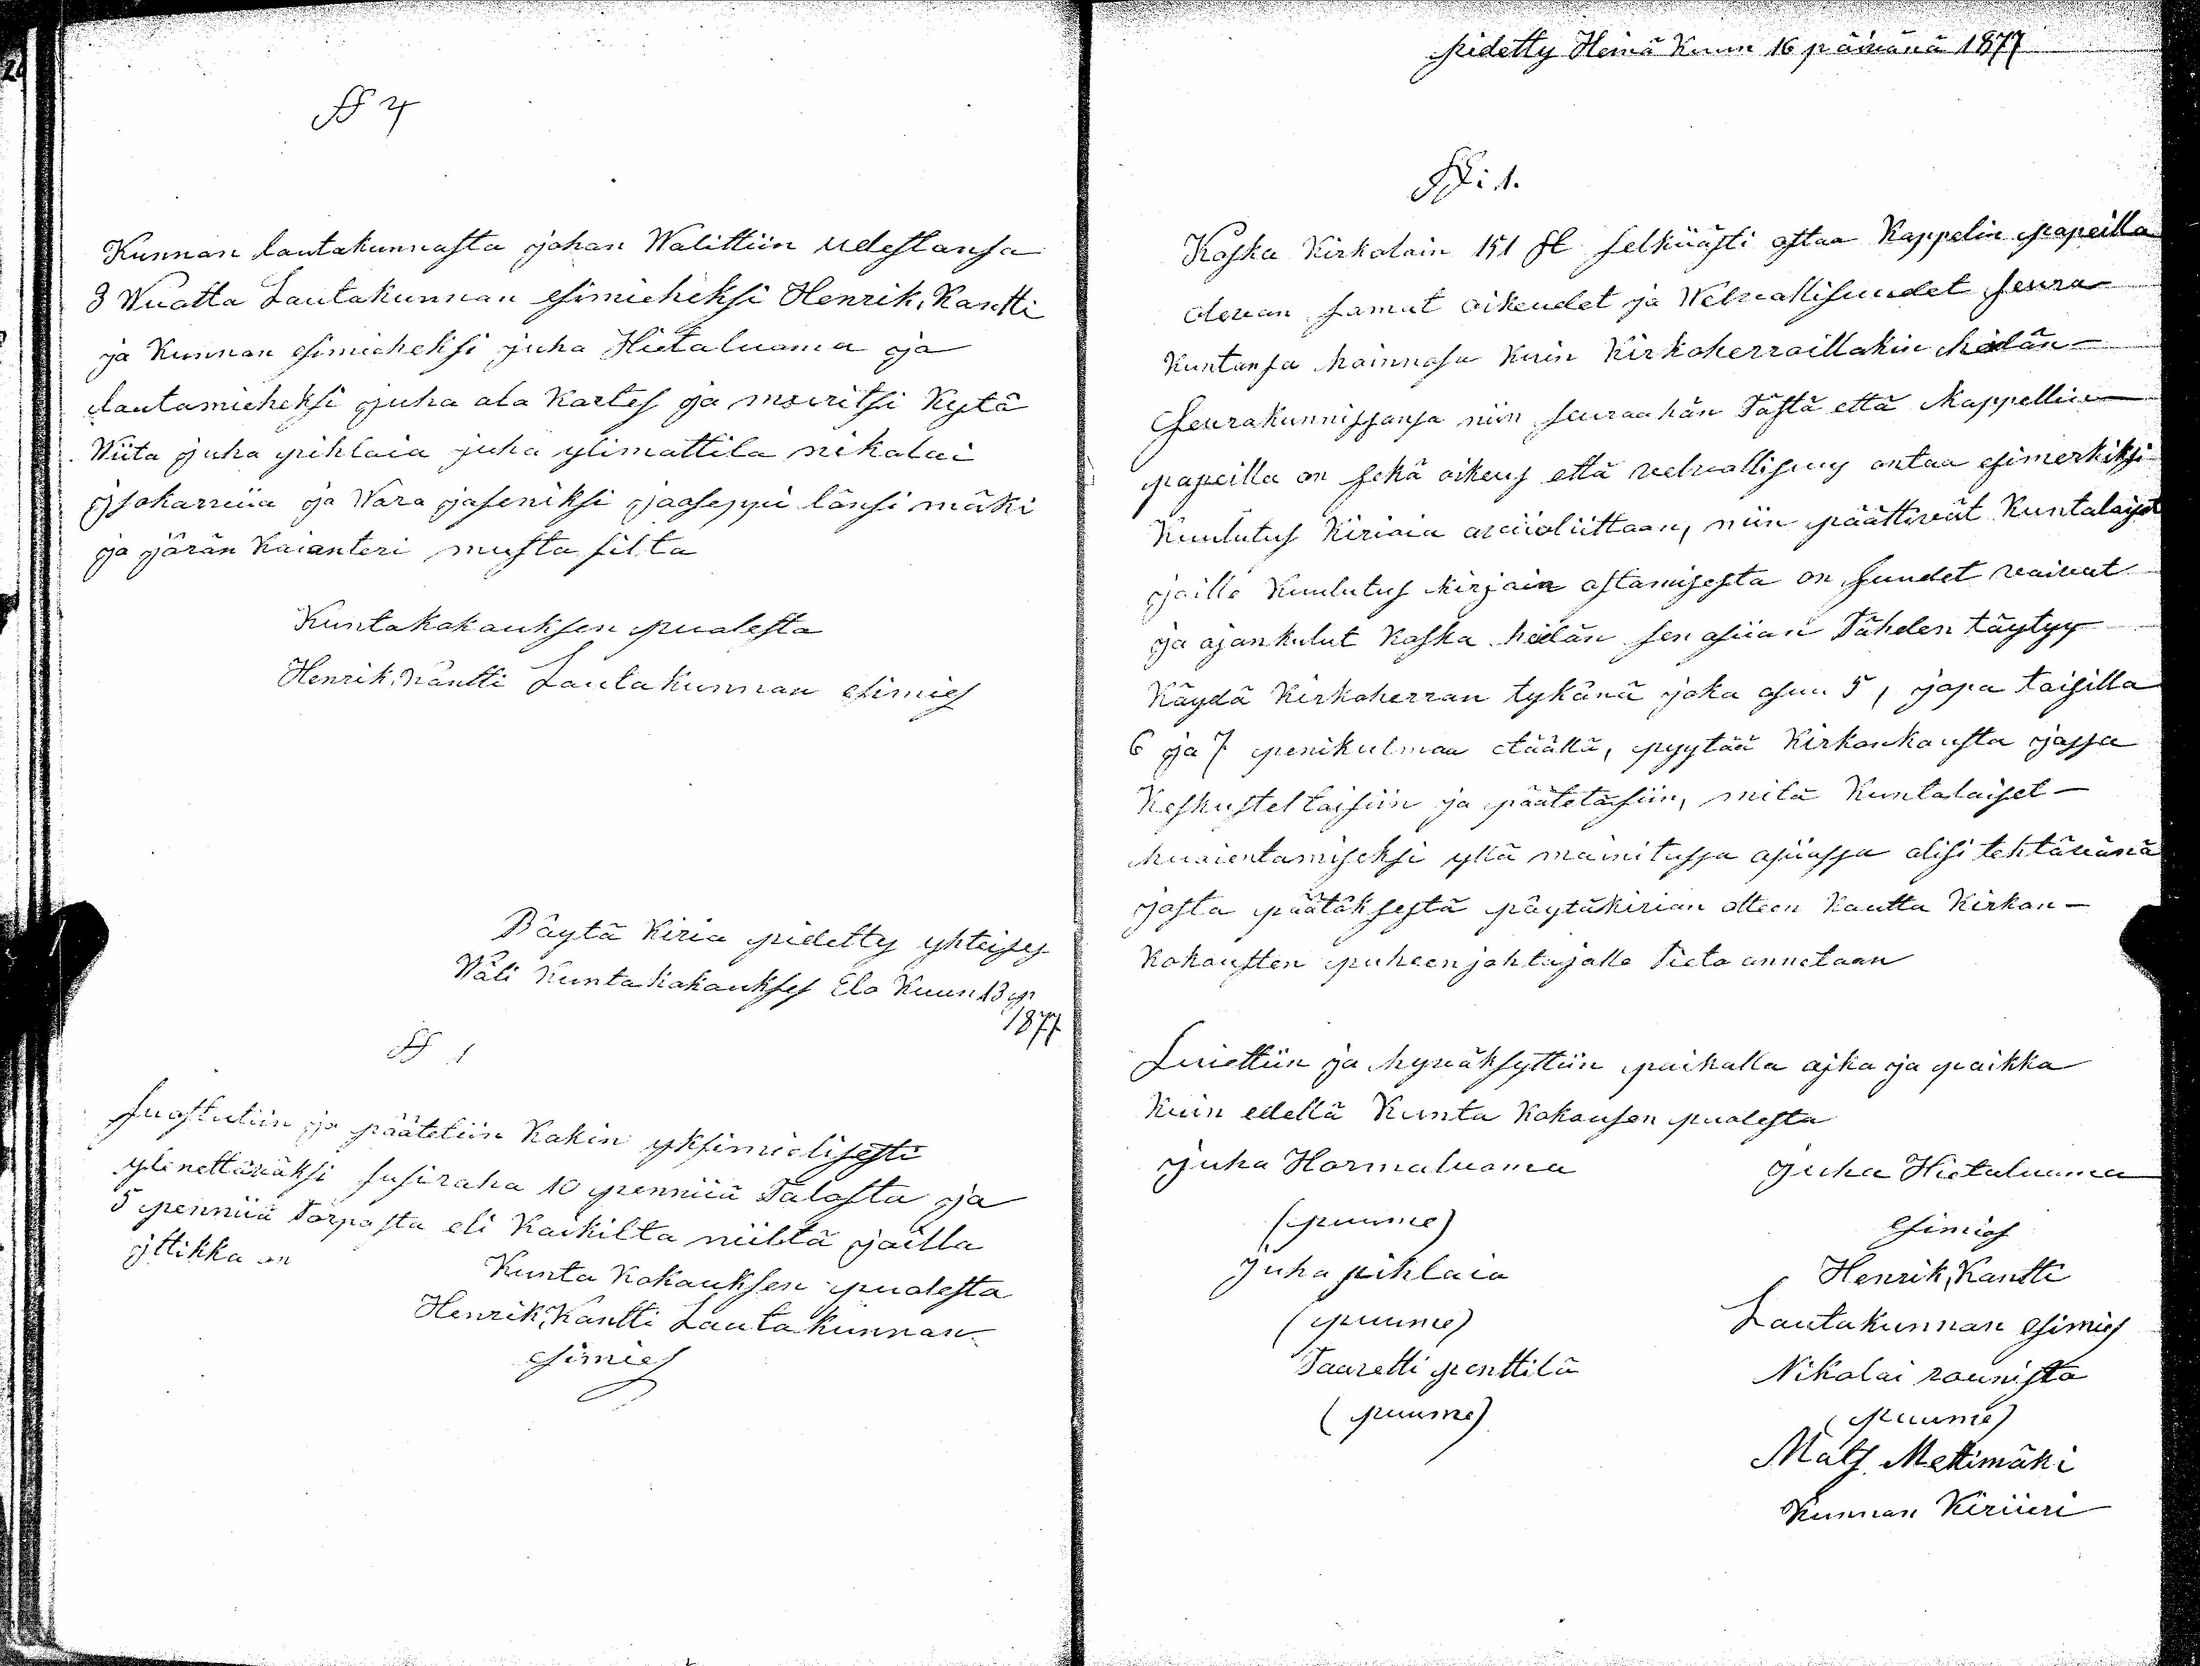 § 4
Kunnan lautakunnasta johan Walittiin udestansa
3 Wuatta Lautakunnan esimieheksi Henrik, Kantti
ja Kunnan esimieheksi juha Hietaluama ja
lautamieheksi juha ala Kartes ja mouritsi Kytä
Wiita juha pihlaia juha ylimattila nikalai
isokarriia ja Wara jaseniksi jaaseppi länsi mäki
ja järän Kaianteri musta silta
Kuntakakauksen pualesta
Henrik, Kantti Lautakunnan esimies
Päytä Kiria pidetty yhteises
Wäli Kunta kakaukses Elo Kuun 13 p
1877
§ 1
Suastutiin ja päätetiin Kakin yksimielisesti
ylänettäväksi susiraha 10 penniiä Talosta ja
5 penniiä Torpasta eli Kaikilta niiltä joilla
jttikka on
Kunta Kakauksen pualesta
Henrik, Kantti Lautakunnan
esimies
pidetty Heinä Kuun 16 päivänä 1877
§: 1.
Koska Kirkolain 151 § selkiiästi ostaa Kappelin papeilla
olevan samat oikeudet ja Welvallisuudet seura
kuntansa hoinnosa kuin Kirkoherroillakin heidän
Seurakunnissansa niin seuraa hän Tästä että Kappellin
papeilla on sekä oikeus että velvallisuus antaa esimerkiksi
Kuulutus Kiriaia aviioliittaan, niin päättivät Kuntalaiset
joille Kuulutus kirjain ostamisesta on suudet vaivat
ja ajankulut Koska heidän sen asiian Tähden täytyy
Käydä Kirkoherran tykänä joka asuu 5, jopa taisilla
6 ja 7 penikulman etäällä, pyytää Kirkonkousta jossa
Keskusteltaisiin ja päätetäsiin, mitä Kuntalaiset
huaientamiseksi yllä mainitussa asiiassa olisi tehtävänä
josta päätäksestä päytäkirian otteen Kautta Kirkon-
Kokousten puheenjohtajalle Tieto annetaan
Luiettiin ja hyväksyttiin paikalla aika ja paikka
Kuin edellä Kunta Kokousen pualesta
juha Hormaluama
(puume)
Juha pihlaia
(puume)
Taaretti penttilä
(puume)
juha Hietaluama
esimies
Henrik, Kantti
Lautakunnan esimies
Nikolai rounista
(puume)
Mats Mettimäki
Kunnan Kiriieri